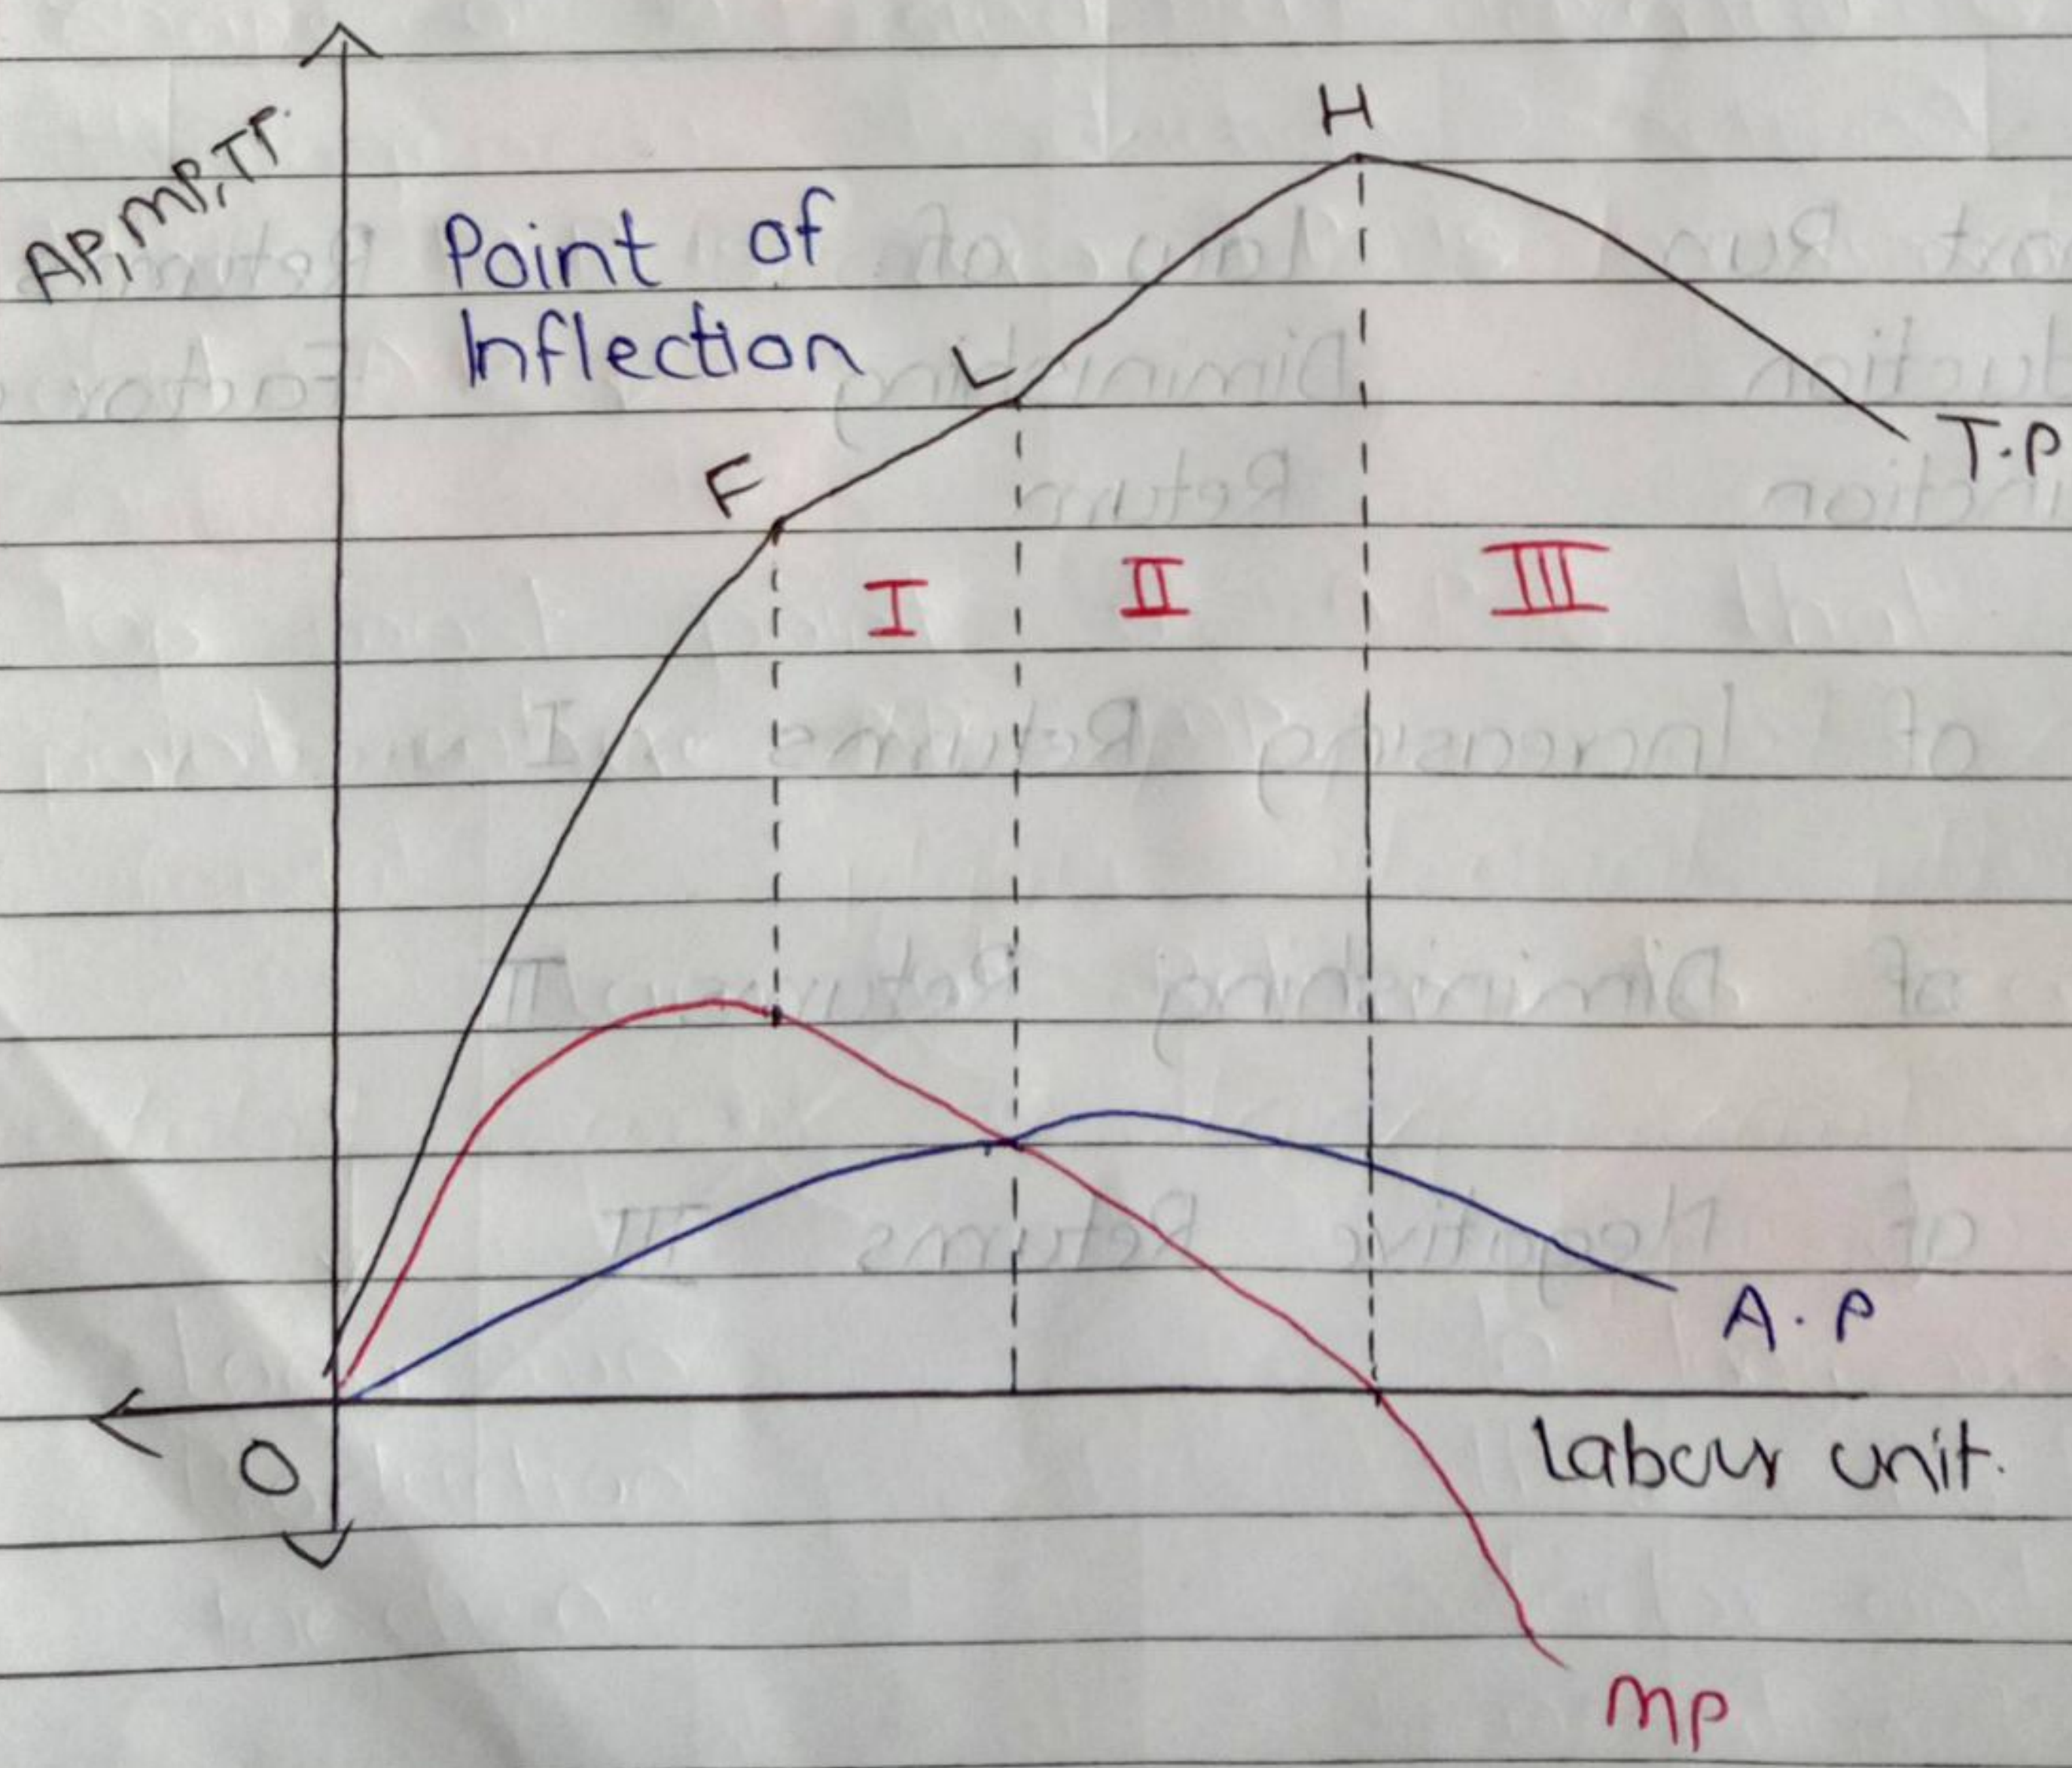 H
AP, MP, TP
Point of
Inflection
L
F
T.P
I II III
A.P
O
Labour unit.
MP